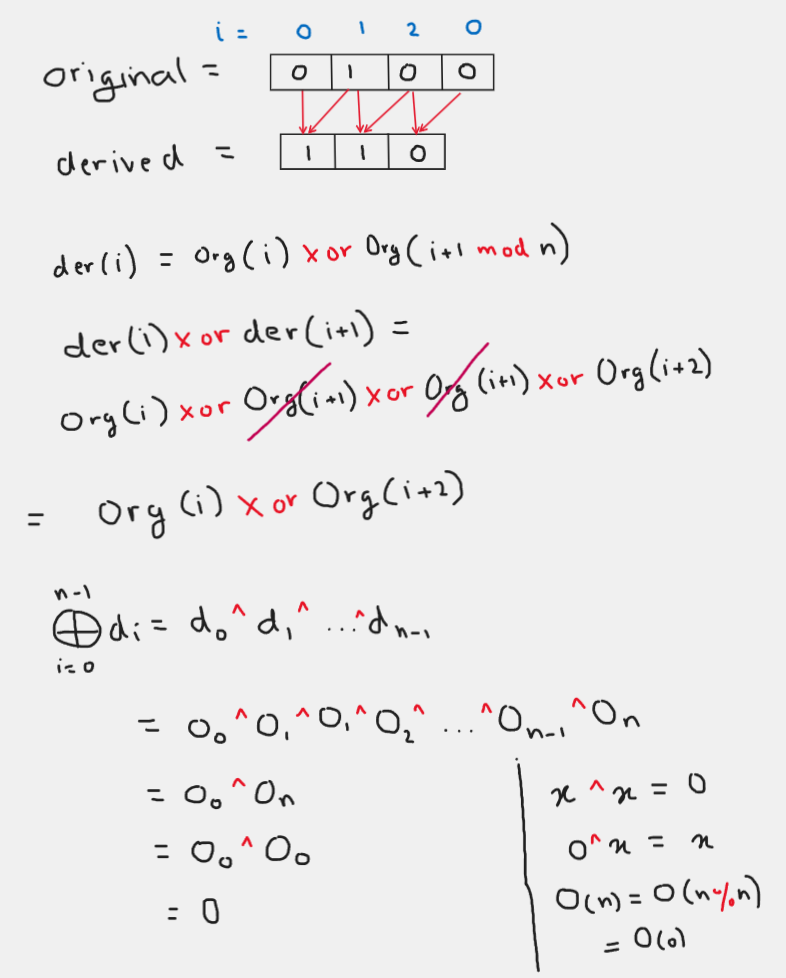 i = 0 1 2 0
original = 0 1 0 0
derived = 1 1 0
der(i) = Org(i) xor Org(i+1 mod n)
der(i) xor der(i+1) =
Org(i) xor Org(i+1) xor Org(i+1) xor Org(i+2)
= Org(i) xor Org(i+2)
n-1
⊕ di = d₀ ^ d₁ ^ ... ^ dₙ₋₁
i=0
= O₀ ^ O₁ ^ O₁ ^ O₂ ^ ... ^ Oₙ₋₁ ^ Oₙ
= O₀ ^ Oₙ
= O₀ ^ O₀
= 0
x ^ x = 0
0 ^ x = x
O(n) = O(n%n)
= O(0)